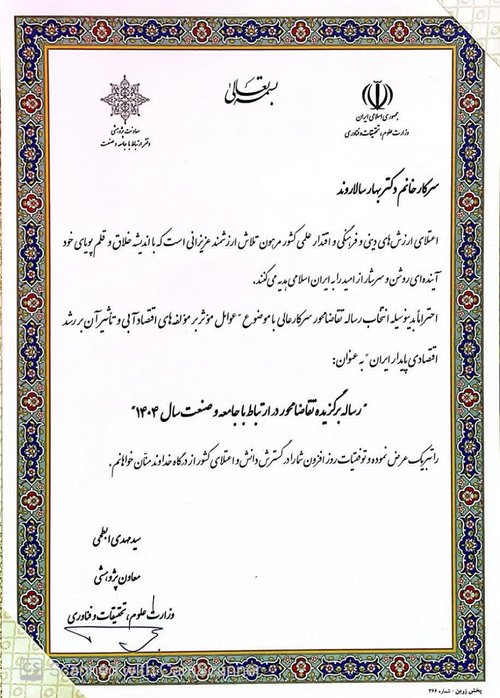 بسمه تعالی
جمهوری اسلامی ایران
وزارت علوم، تحقیقات و فناوری
معاونت پژوهشی
دفتر ارتباط با جامعه و صنعت
سرکار خانم دکتر بهار سالاروند
اعتلای ارزش‌های دینی و فرهنگی و اقتدار علمی کشور مرهون تلاش ارزشمند عزیزانی است که با اندیشه خلاق و قلم پویای خود
آینده‌ای روشن و سرشار از امید را به ایران اسلامی هدیه می‌کنند.
احتراماً بدینوسیله انتخاب رساله تقاضامحور سرکارعالی با موضوع "عوامل مؤثر بر مؤلفه‌های اقتصاد آبی و تأثیر آن بر رشد
اقتصادی پایدار ایران" به عنوان:
"رساله برگزیده تقاضامحور در ارتباط با جامعه و صنعت سال ۱۴۰۴"
را تبریک عرض نموده و توفیقات روز افزون شما را در گسترش دانش و اعتلای کشور از درگاه خداوند منّان خواهانم.
سید مهدی ابطحی
معاون پژوهشی
وزارت علوم، تحقیقات و فناوری
پخش زرین - شماره ۲۶۶